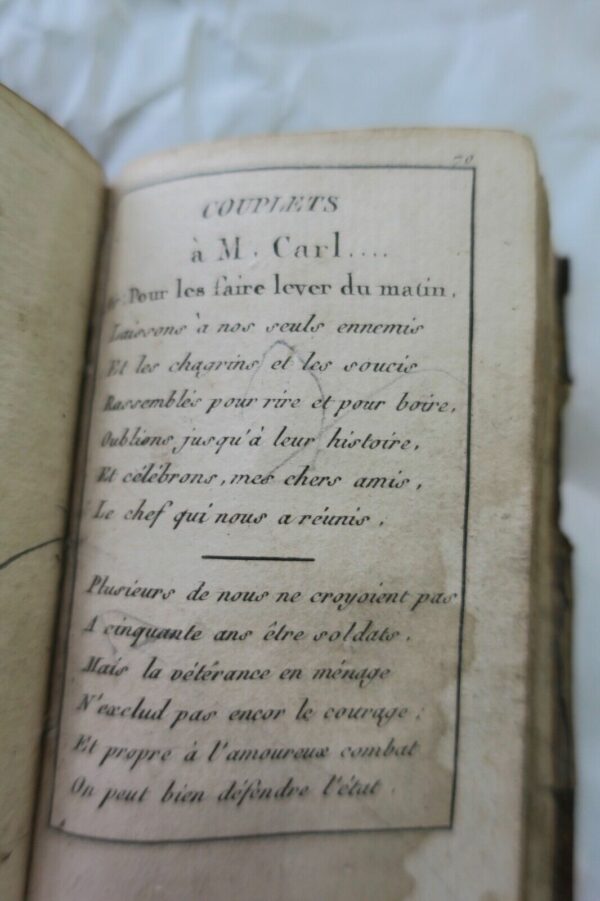 79
COUPLETS
à M. Carl....
Air: Pour les faire lever du matin.
Laissons à nos seuls ennemis
Et les chagrins et les soucis
Rassemblés pour rire et pour boire,
Oublions jusqu'à leur histoire,
Et célébrons, mes chers amis,
Le chef qui nous a réunis.
Plusieurs de nous ne croyoient pas
A cinquante ans être soldats.
Mais la vétérance en ménage
N'exclud pas encor le courage;
Et propre à l'amoureux combat
On peut bien défendre l'état.